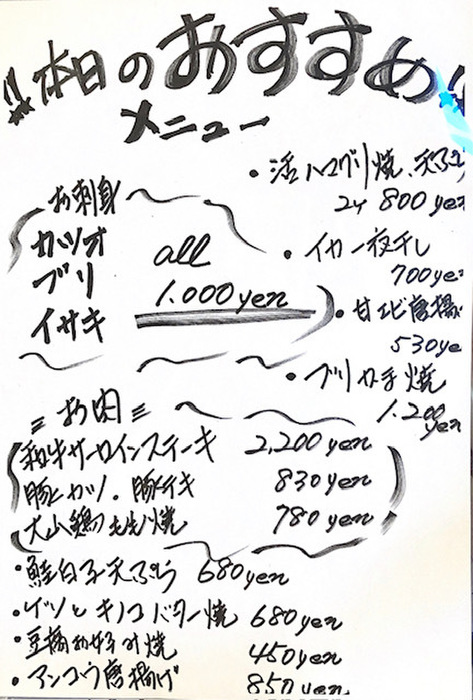 !! 本日のおすすめ!!
メニュー
お刺身
カツオ
ブリ
イサキ
all
1.000yen
・活ハマグリ焼、天ぷら
2ヶ 800yen
・イカ一夜干し
700yen
・甘エビ唐揚
530ye
・ブリカマ焼
1.200
yen
お肉
和牛サーロインステーキ 2,200yen
豚ヒレカツ・豚 830yen
大山鶏もも焼 780yen
・鮭白子天ぷら 680yen
・ゲソとキノコバター焼 680yen
・豆腐お好み焼 450yen
・アンコウ唐揚げ 850yen